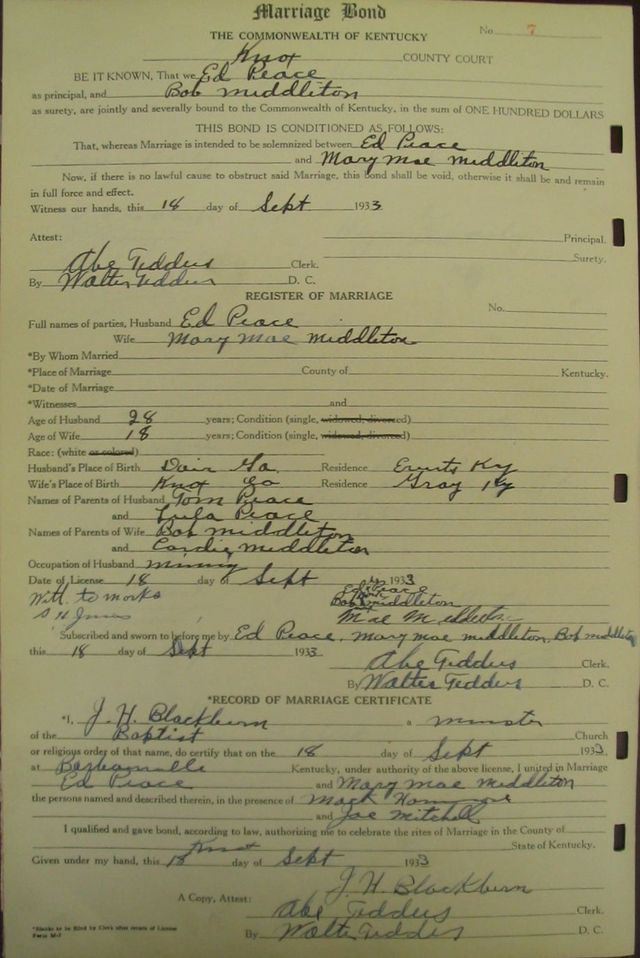 Marriage Bond
No. 7
THE COMMONWEALTH OF KENTUCKY
Knox COUNTY COURT
BE IT KNOWN, That we Ed Peace
as principal, and Bob Middleton
as surety, are jointly and severally bound to the Commonwealth of Kentucky, in the sum of ONE HUNDRED DOLLARS
THIS BOND IS CONDITIONED AS FOLLOWS:
That, whereas Marriage is intended to be solemnized between Ed Peace
and Mary Mae Middleton
Now, if there is no lawful cause to obstruct said Marriage, this bond shall be void, otherwise it shall be and remain
in full force and effect.
Witness our hands, this 18 day of Sept 1933
Attest: Principal.
Surety.
Abe Tedders Clerk.
By Walter Tedders D. C.
REGISTER OF MARRIAGE
No.
Full names of parties, Husband Ed Peace
Wife Mary Mae Middleton
*By Whom Married
*Place of Marriage County of Kentucky.
*Date of Marriage
*Witnesses and
Age of Husband 28 years; Condition (single, widowed, divorced)
Age of Wife 18 years; Condition (single, widowed, divorced)
Race: (white or colored)
Husband's Place of Birth Ga. Residence Ky
Wife's Place of Birth Knox Residence Gray Ky
Names of Parents of Husband Tom Peace
and Lula Peace
Names of Parents of Wife Bob Middleton
and Middleton
Occupation of Husband Mining
Date of License 18 day of Sept 1933
Witt. to marks Ed Peace
Bob Middleton
Mae Middleton
Subscribed and sworn to before me by Ed Peace, Mary Mae Middleton, Bob Middleton
this 18 day of Sept 1933
Abe Tedders Clerk.
By Walter Tedders D. C.
*RECORD OF MARRIAGE CERTIFICATE
*I, J. H. Blackburn a minster
of the Baptist Church
or religious order of that name, do certify that on the 18 day of Sept 1933
at Barbourville Kentucky, under authority of the above license, I united in Marriage
Ed Peace and Mary Mae Middleton
the persons named and described therein, in the presence of Mack
and Joe Mitchell
I qualified and gave bond, according to law, authorizing me to celebrate the rites of Marriage in the County of
Knox State of Kentucky.
Given under my hand, this 18 day of Sept 1933
J. H. Blackburn
A Copy, Attest: Abe Tedders Clerk.
By Walter Tedders D. C.
*Blanks to be filled by Clerk after return of License
Form M-3